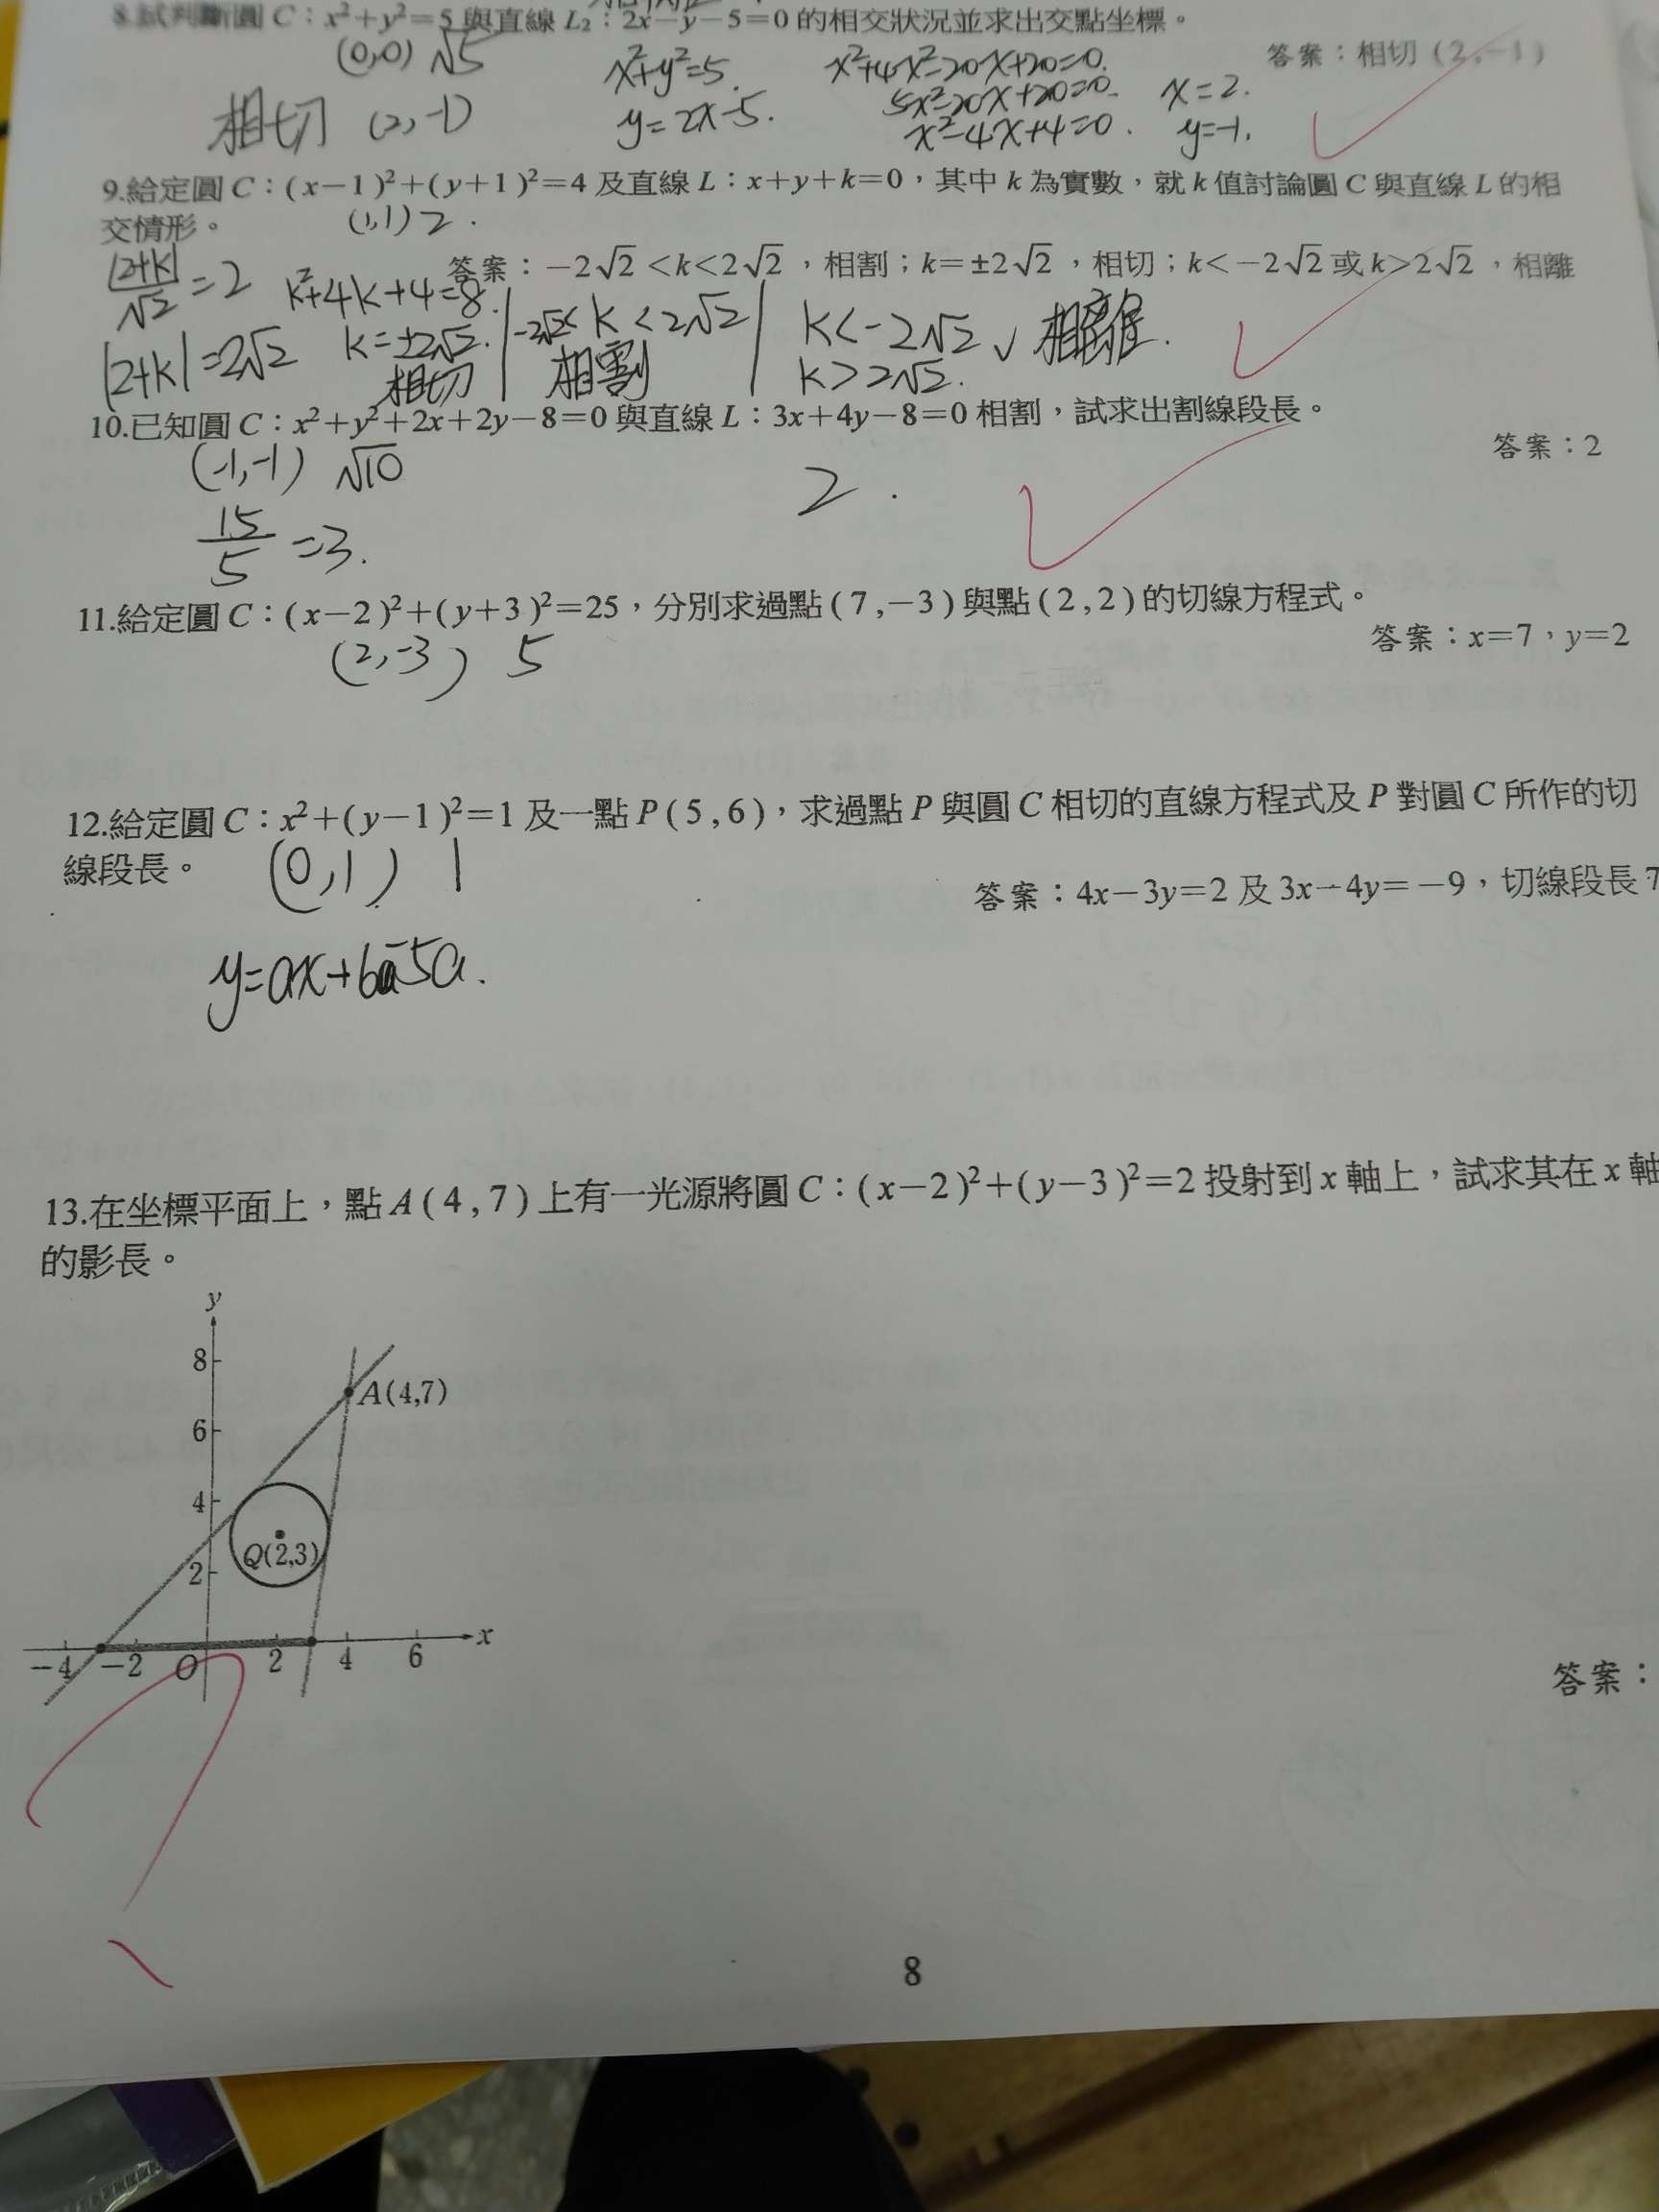 8.試判斷圓 C：x²+y²=5 與直線 L₂：2x−y−5=0 的相交狀況並求出交點坐標。
答案：相切 (2,−1)
(0,0) √5
x²+y²=5.
y=2x-5.
x²+4x²-20x+20=0.
5x²-20x+20=0.
x²-4x+4=0.
x=2.
y=-1.
相切 (2,-1)
9.給定圓 C：(x−1)²+(y+1)²=4 及直線 L：x+y+k=0，其中 k 為實數，就 k 值討論圓 C 與直線 L 的相
交情形。
(1,1) 2.
答案：−2√2<k<2√2，相割；k=±2√2，相切；k<−2√2 或 k>2√2，相離
|2+k|/√2=2
|2+k|=2√2
k²+4k+4=8.
k=±2√2.
相切
-2√2<k<2√2
相割
k<-2√2、相離.
k>2√2.
10.已知圓 C：x²+y²+2x+2y−8=0 與直線 L：3x+4y−8=0 相割，試求出割線段長。
答案：2
(-1,-1) √10
2.
15/5=3.
11.給定圓 C：(x−2)²+(y+3)²=25，分別求過點(7,−3)與點(2,2)的切線方程式。
答案：x=7，y=2
(2,-3) 5
12.給定圓 C：x²+(y−1)²=1 及一點 P(5,6)，求過點 P 與圓 C 相切的直線方程式及 P 對圓 C 所作的切
線段長。
(0,1) 1
答案：4x−3y=2 及 3x−4y=−9，切線段長 7
y=ax+6-5a.
13.在坐標平面上，點 A(4,7)上有一光源將圓 C：(x−2)²+(y−3)²=2 投射到 x 軸上，試求其在 x 軸
的影長。
y
8
A(4,7)
6
4
Q(2,3)
2
x
−4 −2 O 2 4 6
答案：
8